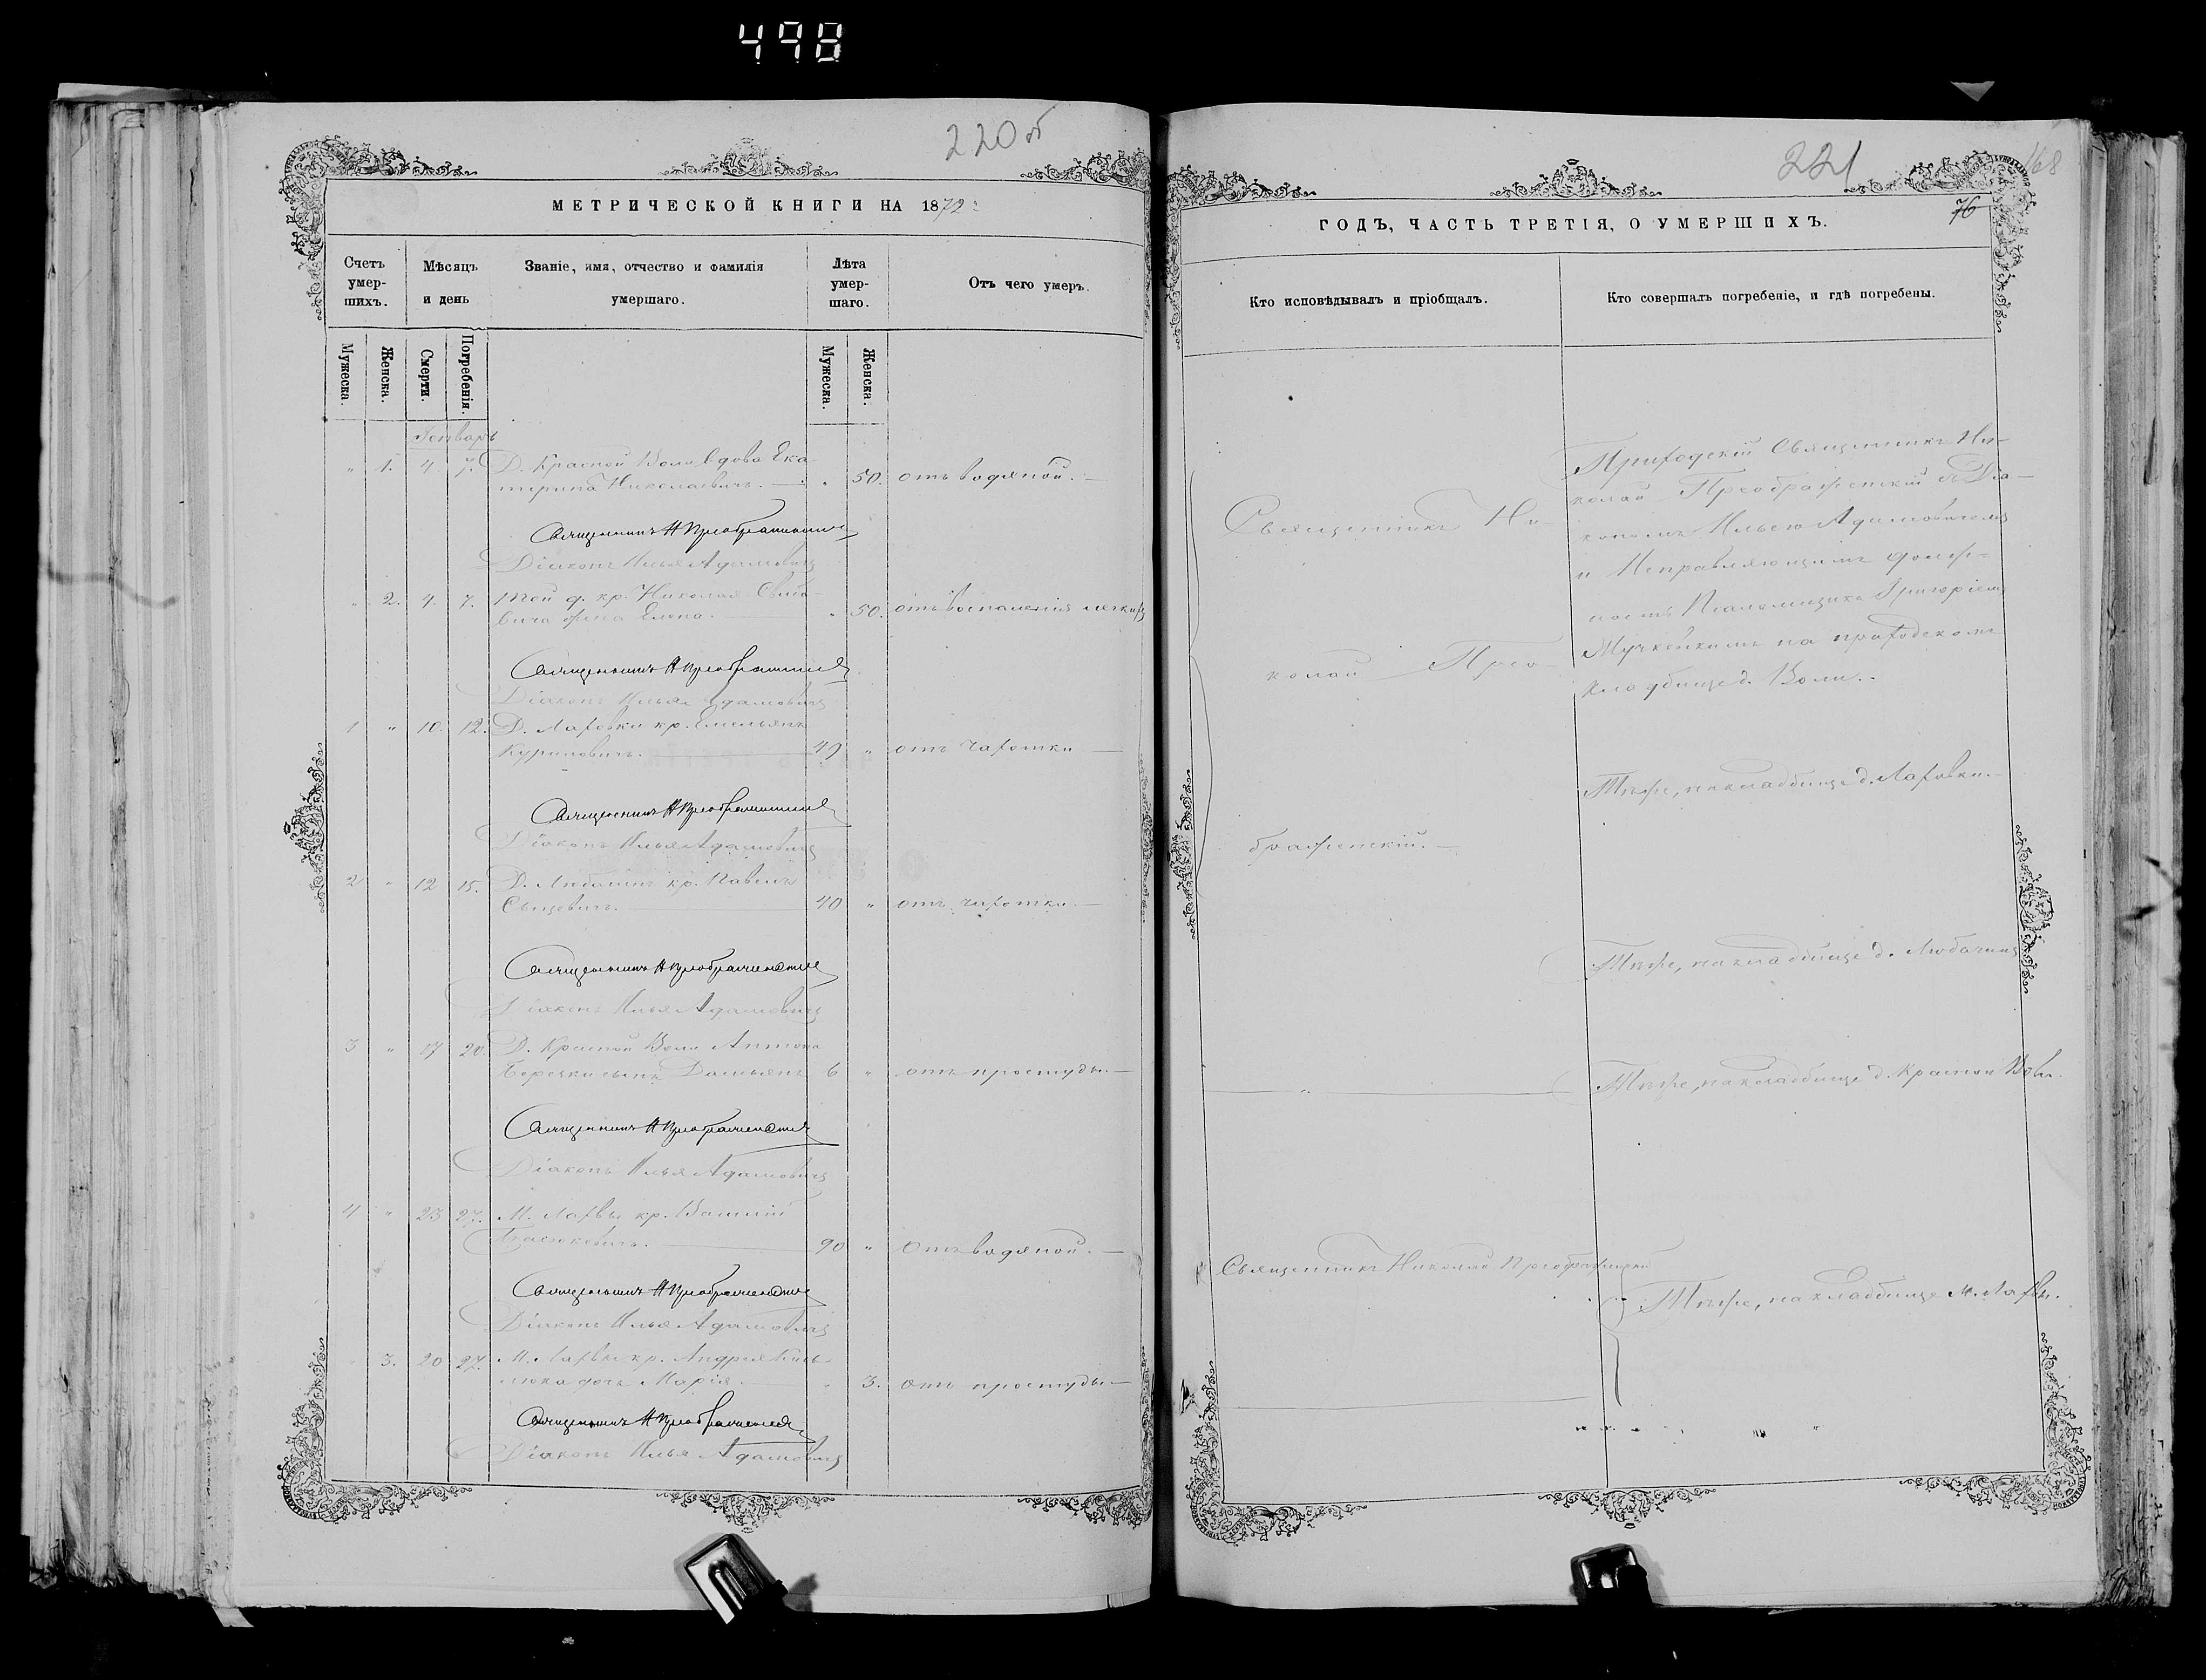 498
220 об
МЕТРИЧЕСКОЙ КНИГИ НА 1872
Счетъ умер-шихъ.
Мѣсяцъ и день
Званіе, имя, отчество и фамилія умершаго.
Лѣта умер-шаго.
Отъ чего умеръ.
Мужеска.
Женска.
Смерти.
Погребенія.
Мужеска.
Женска.
Генварь
" 1. 4. 7. Д. Красной Воли вдова Ека-
терина Николаевичъ. " 50. отъ водяной.
Священникъ Н Преображенскій
Діаконъ Илья Адамовичъ
" 2. 4. 7. Той д. кр. Николая
вича жена Елена. " 50. отъ воспаленія легкихъ
Священникъ Н Преображенскій
Діаконъ Илья Адамовичъ
1 " 10. 12. Д. Лаховки кр. Емильянъ
Куриловичъ. 49 " отъ чахотки
Священникъ Н Преображенскій
Діаконъ Илья Адамовичъ
2 " 12 15. Д. Любачинъ кр. Павелъ
40 " отъ чахотки.
Священникъ Н Преображенскій
Діаконъ Илья Адамовичъ
3 " 17 20. Д. Красной Воли Антона
сынъ Дамьянъ 6 " отъ простуды.
Священникъ Н Преображенскій
Діаконъ Илья Адамовичъ
4 " 23 27. М. Лахвы кр. Василій
90 " отъ водяной.
Священникъ Н Преображенскій
Діаконъ Илья Адамовичъ
" 3. 20 27. М. Лахвы кр. Андрея
дочь Марія " 3. отъ простуды
Священникъ Н Преображенскій
Діаконъ Илья Адамовичъ
221
168
76
ГОДЪ, ЧАСТЬ ТРЕТІЯ, О УМЕРШИХЪ.
Кто исповѣдывалъ и пріобщалъ.
Кто совершалъ погребеніе, и гдѣ погребены.
Священникъ Ни-
колай Прео-
браженскій.
Приходскій Священникъ Ни-
колай Преображенскій съ Діа-
кономъ Ильею Адамовичемъ
и Исправляющимъ долж-
ность Псаломщика Григоріемъ
на приходскомъ
кладбище д. Воли.
Тѣже, на кладбище д. Лаховки.
Тѣже, на кладбище д. Любачинъ
" Тѣже, на кладбище д. Красной Воли.
Священникъ Николай Преображенскій
Тѣже, на кладбище м. Лахвы.